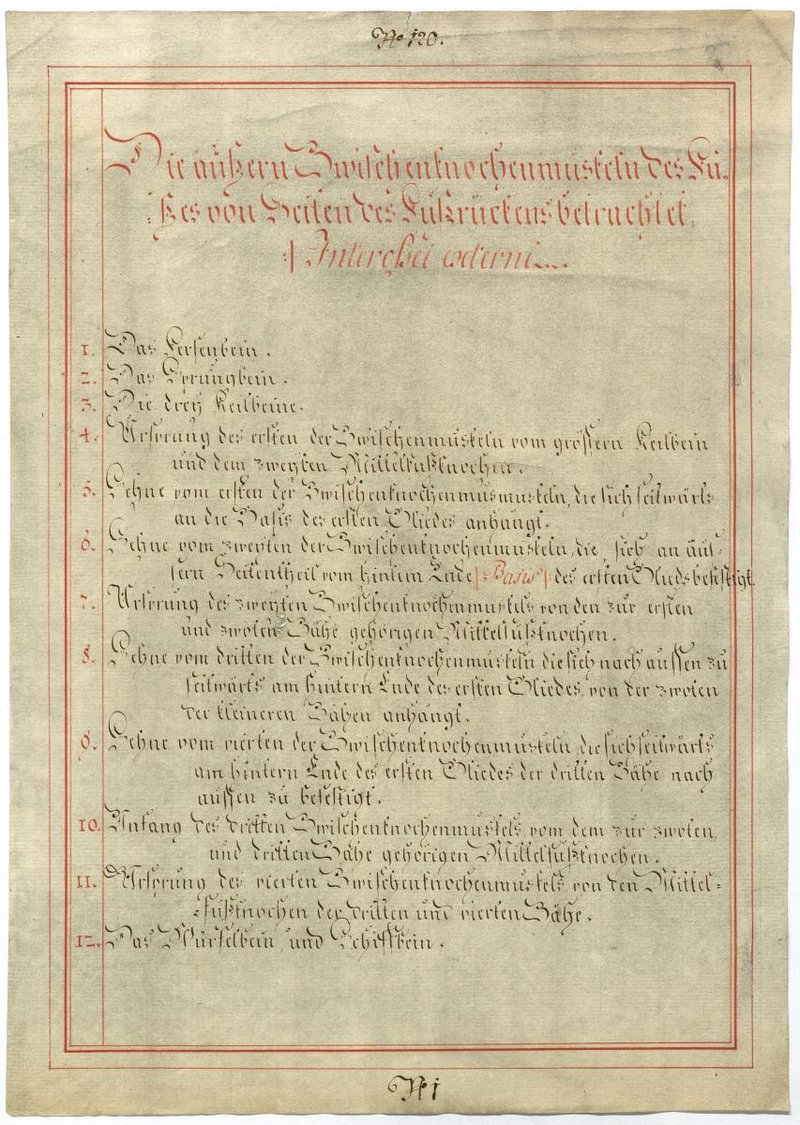 No 120.
Die äußern Zwischenknochenmuskeln des Fu-
ßes von Seiten des Fußrückens betrachtet.
Interoßei externi
1. Das Fersenbein.
2. Das Sprungbein.
3. Die drey Keilbeine.
4. Ursprung des ersten der Zwischenmuskeln vom grössern Keilbein
und dem zweyten Mittelfußknochen.
5. Sehne vom ersten der Zwischenknochenmusmuskeln, die sich seitwärts
an die Basis des ersten Gliedes anhängt.
6. Sehne vom zweyten der Zwischenknochenmuskeln, die sich an äus-
sern Seitentheil vom hintern Ende |: Basis :| des ersten Glieds befestigt.
7. Ursprung des zweyten Zwischenknochenmuskels von den zur ersten
und zwoten Zähe gehörigen Mittelfußknochen.
8. Sehne vom dritten der Zwischenknochenmuskeln die sich nach aussen zu
seitwärts am hintern Ende des ersten Gliedes, von der zwoten
der kleineren Zähen anhängt.
9. Sehne vom vierten der Zwischenknochenmuskeln, die sich seitwärts
am hintern Ende des ersten Gliedes der dritten Zähe nach
aussen zu befestigt.
10. Anfang des dritten Zwischenknochenmuskels, vom dem zur zwoten,
und dritten Zähe gehörigen Mittelfußknochen.
11. Ursprung des vierten Zwischenknochenmuskels, von den Mittel=
=fußknochen der dritten und vierten Zähe.
12. Das Würfelbein, und Schiffbein.
No 1